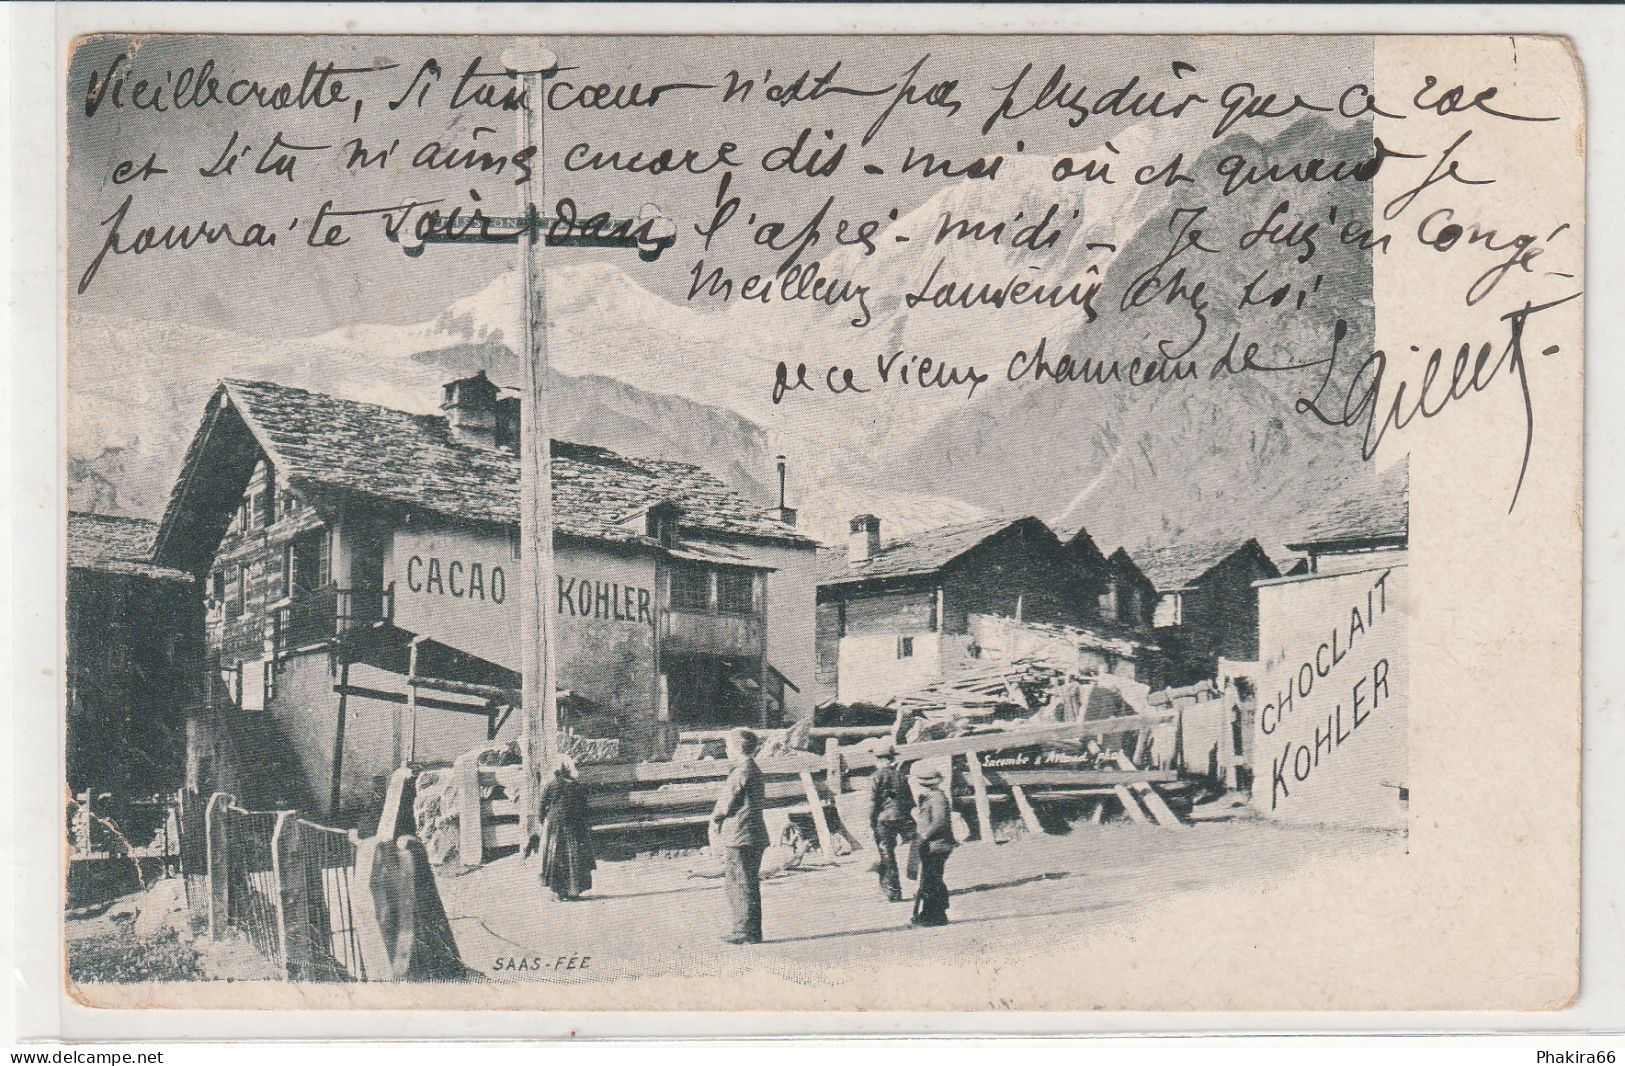 Vieille crotte, Si ton cœur n'est pas plus dur que ce roc
et si tu m'aimes encore, dis-moi où et quand je
pourrai te voir dans l'après-midi - Je suis en Congé -
Meilleurs souvenirs chez toi
de ce vieux
LGillet.
CACAO KOHLER
CHOCLAIT
KOHLER
SAAS-FÉE
delcampe.net
Phakira66